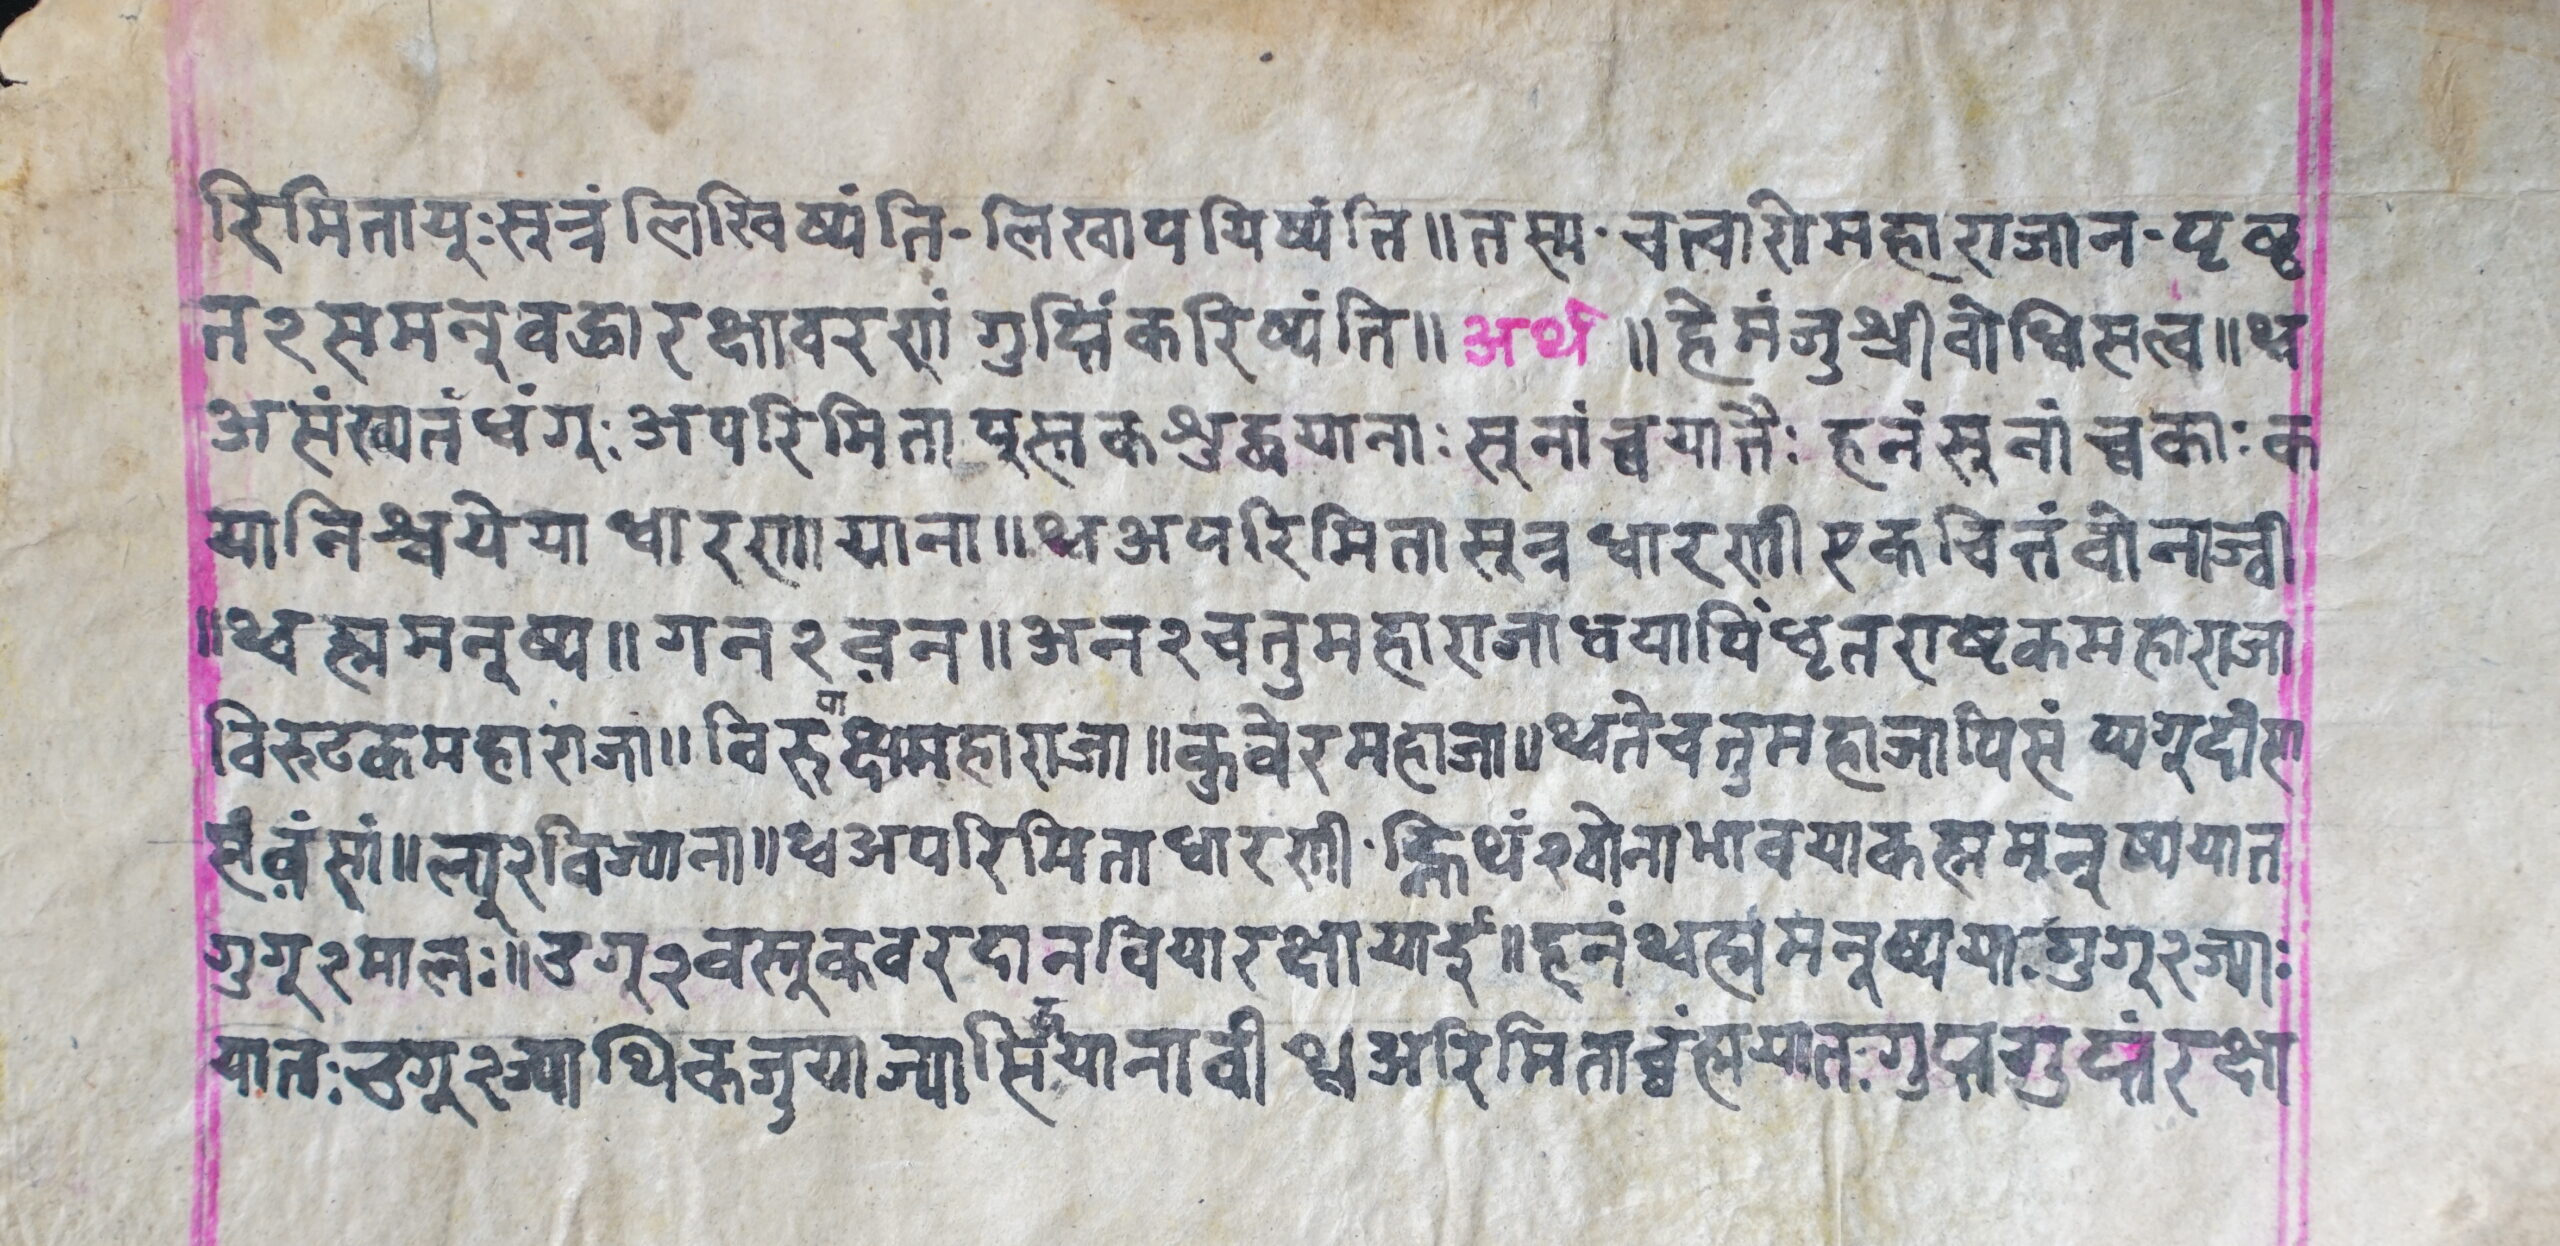 रिमितायूःसूत्रं लिखिष्यंति-लिखापयिष्यंति॥तस्म·चत्वारोमहाराजान-पृष्ठ
त२समनुवद्धारक्षावरणं गुप्तिंकरिष्यंति॥अर्थ॥हेमंजुश्रीवोधिसत्व॥थ्व
असंख्यतंधंगुः अपरिमिता पुस्तकशुद्धयानाः सूनांच्वयातैः हनंसूनांच्वकाः क
यानिश्चयेया धारणायाना॥थ्वअपरिमितासूत्रधारणीएकचित्तंवोनाज्वी
॥थ्वह्ममनूष्य॥गन२वन॥अन२चतुमहाराजाधयापिंधृतराष्टकमहाराजा
विरुटकमहाराजा॥विरुपाक्षमहाराजा॥कुवेरमहाजा॥थ्वतेचतुमहाजापिसं प्यगूदीसा
संवंसां॥ल्यू२विज्याना॥थ्वअपरिमिताधारणी·ह्निथं२वोनाभावयाकह्ममनूष्ययात
गुगू२मालः॥उगू२वस्तूकवरदानवियारक्षायाई॥हनंथ्वह्ममनूष्ययाःगुगू२ज्याः
यातःउगू२ज्याथिकजुयाज्यासिंयानावी थ्वअरिमिताच्वंह्मयातःगुप्तगुप्तंरक्षा